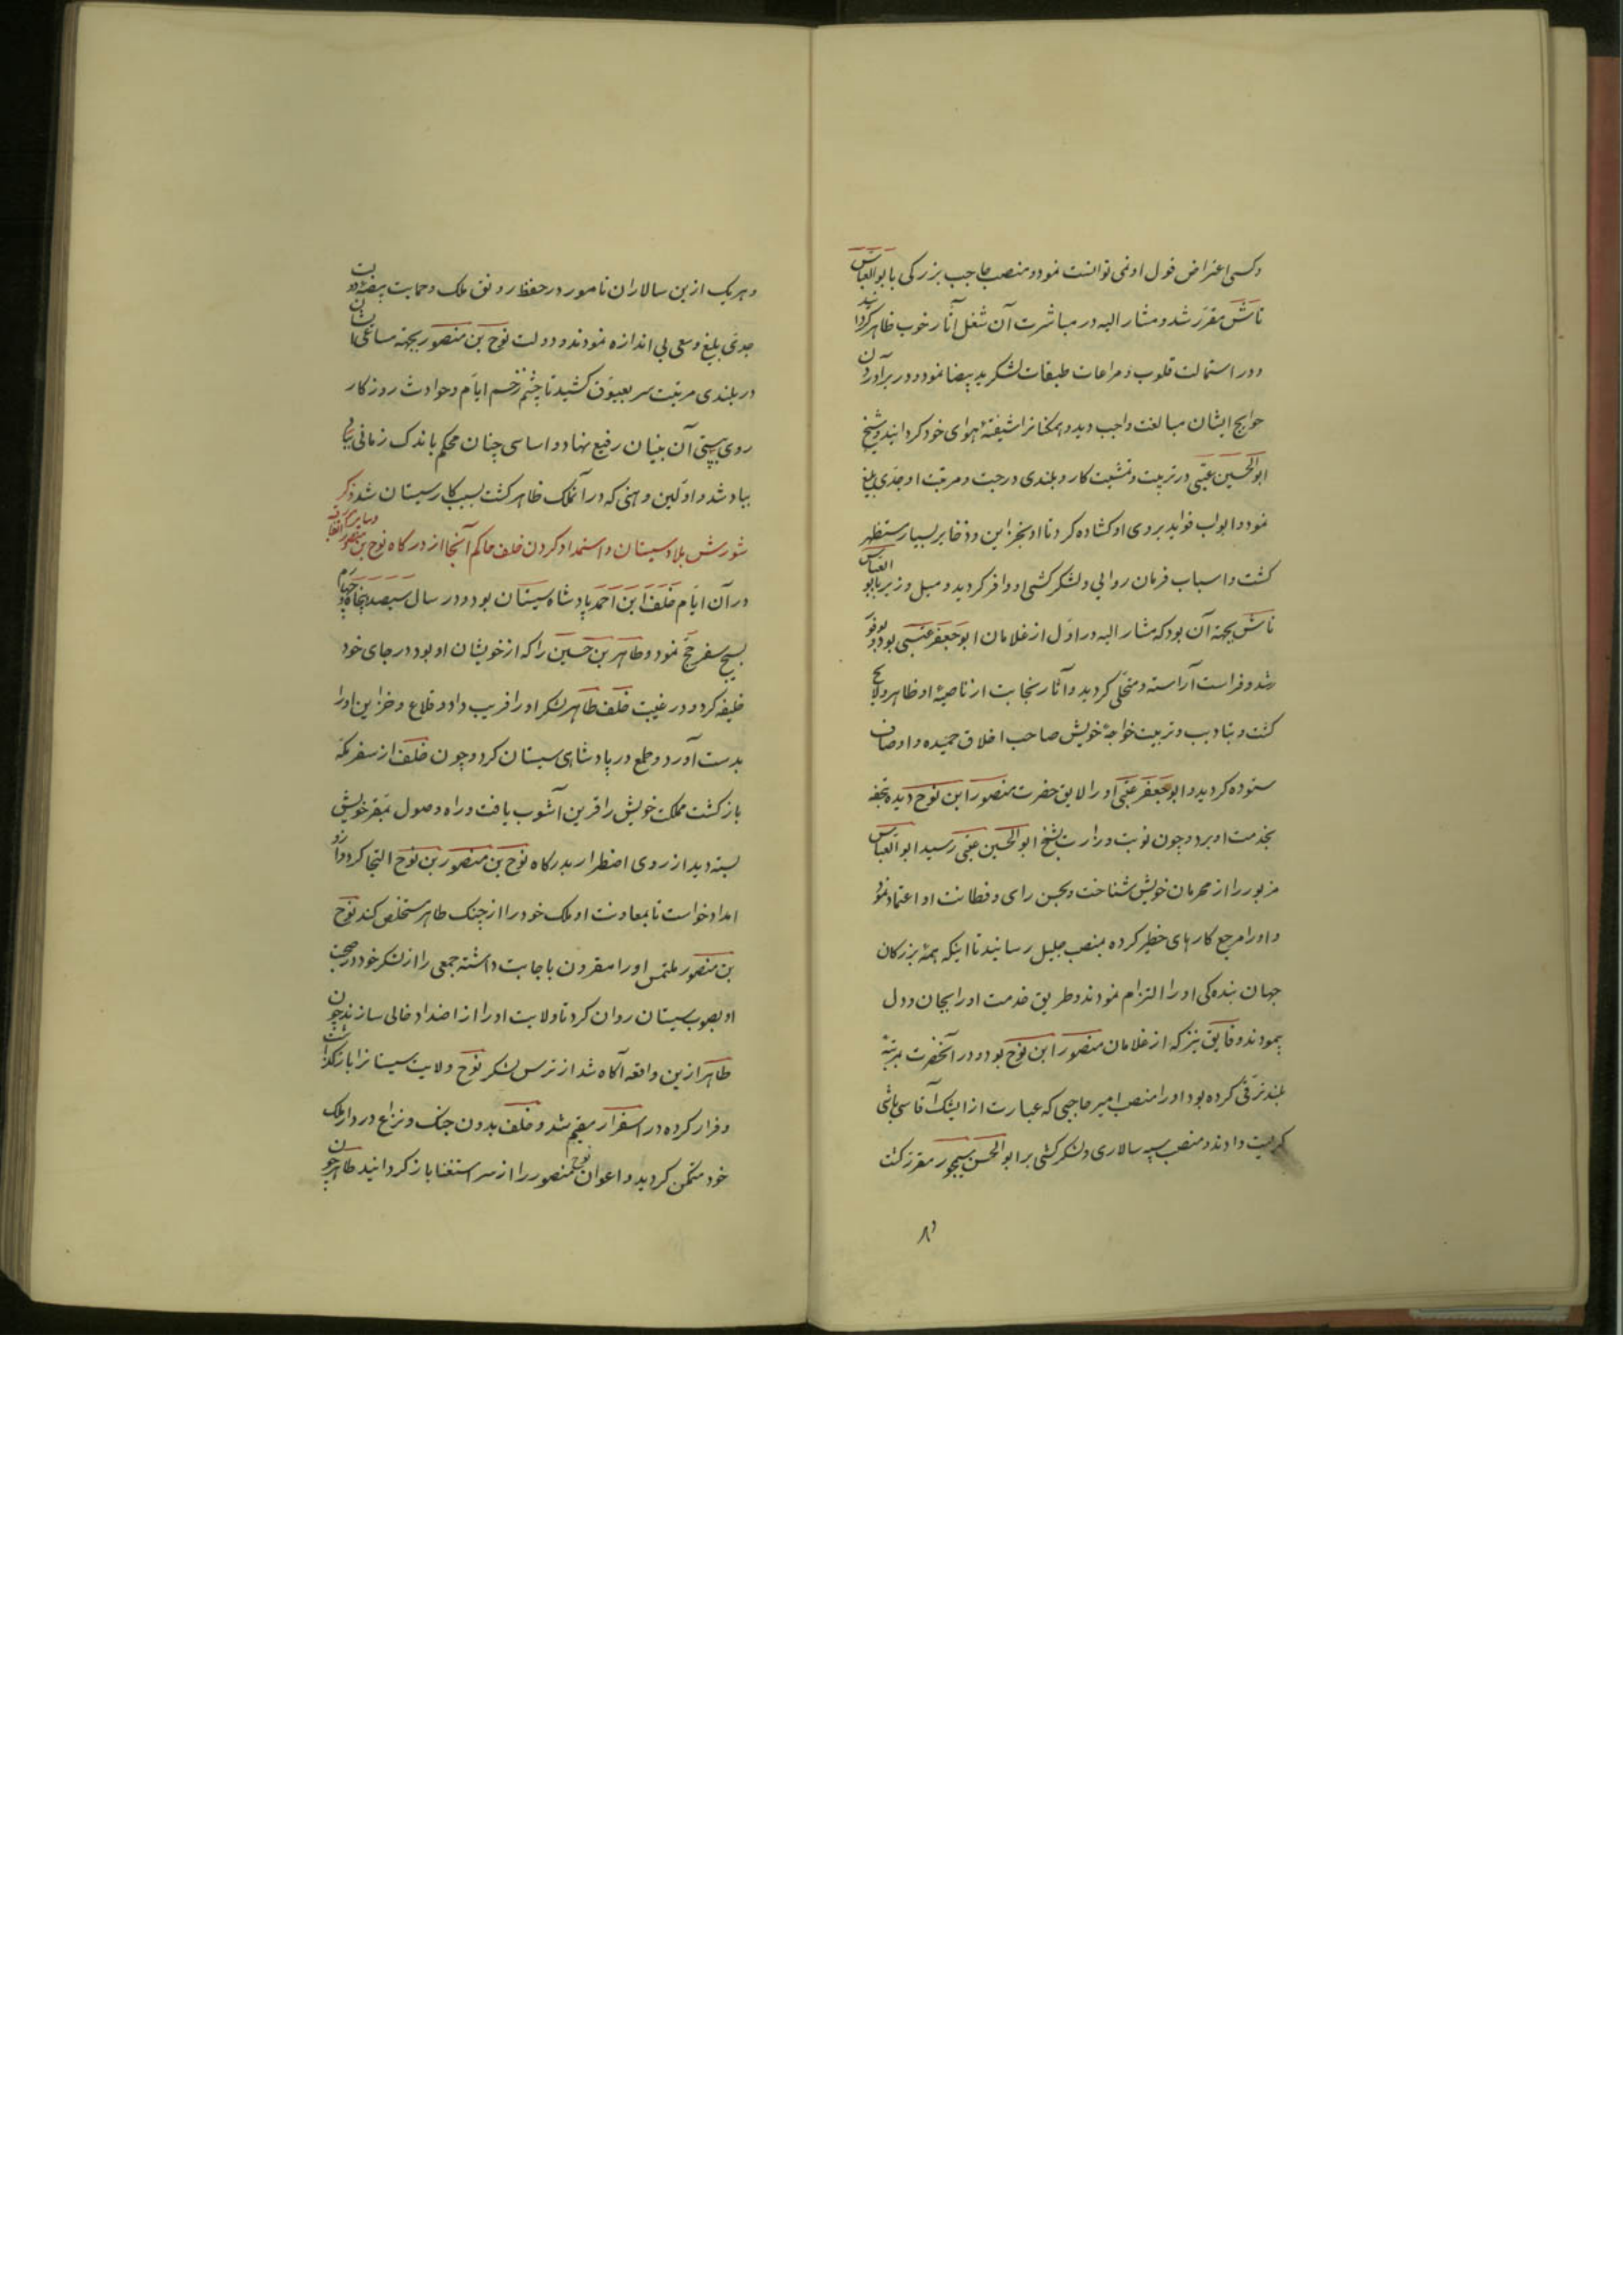 وکسی اعتراض قول او نمی توانست نمود و منصب حاجب بزرکی بابوالعباس
تاش مقرر شد و مشار الیه در مباشرت آن شغل آثار خوب ظاهر کردانید
و در استمالت قلوب و مراعات طبقات لشکر ید بیضا نمود و در برآوردن
حوایج ایشان مبالغت واجب دید و همکنانرا شیفتهٔ هوای خود کردانید و شیخ
ابوالحسین عتبی در تربیت و تمشیت کار و بلندی درجت و مرتبت او جدی بلیغ
نمود و ابواب فواید بروی او کشاده کرد تا او بخزاین و ذخایر بسیار مستظهر
کشت و اسباب فرمان روایی و لشکرکشی او وافر کردید و میل وزیر بابو العباس
تاش بجهة آن بود که مشار الیه در اول از غلامان ابوجعفر عتبی بود و بوفور
رشد و فراست آراسته و متحلی کردید و آثار نجابت از ناصیهٔ او ظاهر و لایح
کشت و بتادیب و تربیت خواجهٔ خویش صاحب اخلاق حمیده و اوصاف
ستوده کردید و ابوجعفر عتبی او را لایق حضرت منصور ابن نوح دیده بتحفه
بخدمت او برد و چون نوبت وزارت بشیخ ابوالحسین عتبی رسید ابوالعباس
مزبور را از محرمان خویش شناخت و بحسن رای و فطانت او اعتماد نمود
و او را مرجع کارهای خطیر کرده بمنصب جلیل رسانید تا اینکه همهٔ بزرکان
جهان بنده کی او را التزام نمودند و طریق خدمت او را بجان و دل
پیمودند و فایق نیز که از غلامان منصور ابن نوح بود و در آنحضرت بمرتبهٔ
بلند ترقی کرده بود او را منصب امیر حاجبی که عبارت از ایشک آقاسی باشی
کریست دادند و منصب سپه سالاری و لشکرکشی بر ابوالحسن سیمجور مقرر کشت
وهر یک ازین سالاران نامور در حفظ رونق ملک و حمایت بیضهٔ دولت
جدی بلیغ و سعی بی اندازه نمودند و دولت نوح بن منصور بجهة مساعی ایشان
در بلندی مرتبت سر بعیوق کشید تا چشم زخم ایام و حوادث روزکار
روی بپستی آن بنیان رفیع نهاد و اساسی چنان محکم باندک زمانی
بباد شد و اولین وهنی که در آنملک ظاهر کشت بسبب کار سیستان شد ذکر
شورش بلاد سیستان و استمداد کردن خلف حاکم آنجا از درکاه نوح بن منصور
در آن ایام خلف ابن احمد پادشاه سیستان بود و در سال سیصد و پنجاه و چهارم
بسیج سفر حج نمود و طاهر بن حسین را که از خویشان او بود در جای خود
خلیفه کرد و در غیبت خلف طاهر لشکر او را فریب داد و قلاع و خزاین او را
بدست آورد و طمع در پادشاهی سیستان کرد و چون خلف از سفر مکه
بازکشت مملکت خویش را قرین آشوب یافت و راه وصول بمقر خویش
بسته دید از روی اضطرار بدرکاه نوح بن منصور بن نوح التجا کرد و ازو
امداد خواست تا بمعاونت او ملک خود را از چنک طاهر مستخلص کند نوح
بن منصور ملتمس او را مقرون باجابت داشته جمعی را از لشکر خود در صحبت
او بصوب سیستان روان کرد تا ولایت او را از اضداد خالی سازند چون
طاهر ازین واقعه آکاه شد از ترس لشکر نوح ولایت سیستانرا باز کذاشت
و فرار کرده در اسفزار مقیم شد و خلف بدون جنک و نزاع در دار ملک
خود متمکن کردید و اعوان نوح منصور را از سر استغنا باز کردانید طاهر چون